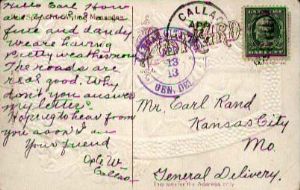 Hello Earl How
are you
fine and dandy
we are having
pretty weather now
The roads are
real good. Why
don't you answer
my letter.
Hoping to hear from
you soon I am
Your friend
Ople W.
Callao
CALLAO
CARD
SEP
13
13
GEN. DEL.
Mr. Earl Rand
Kansas City
Mo.
General Delivery.